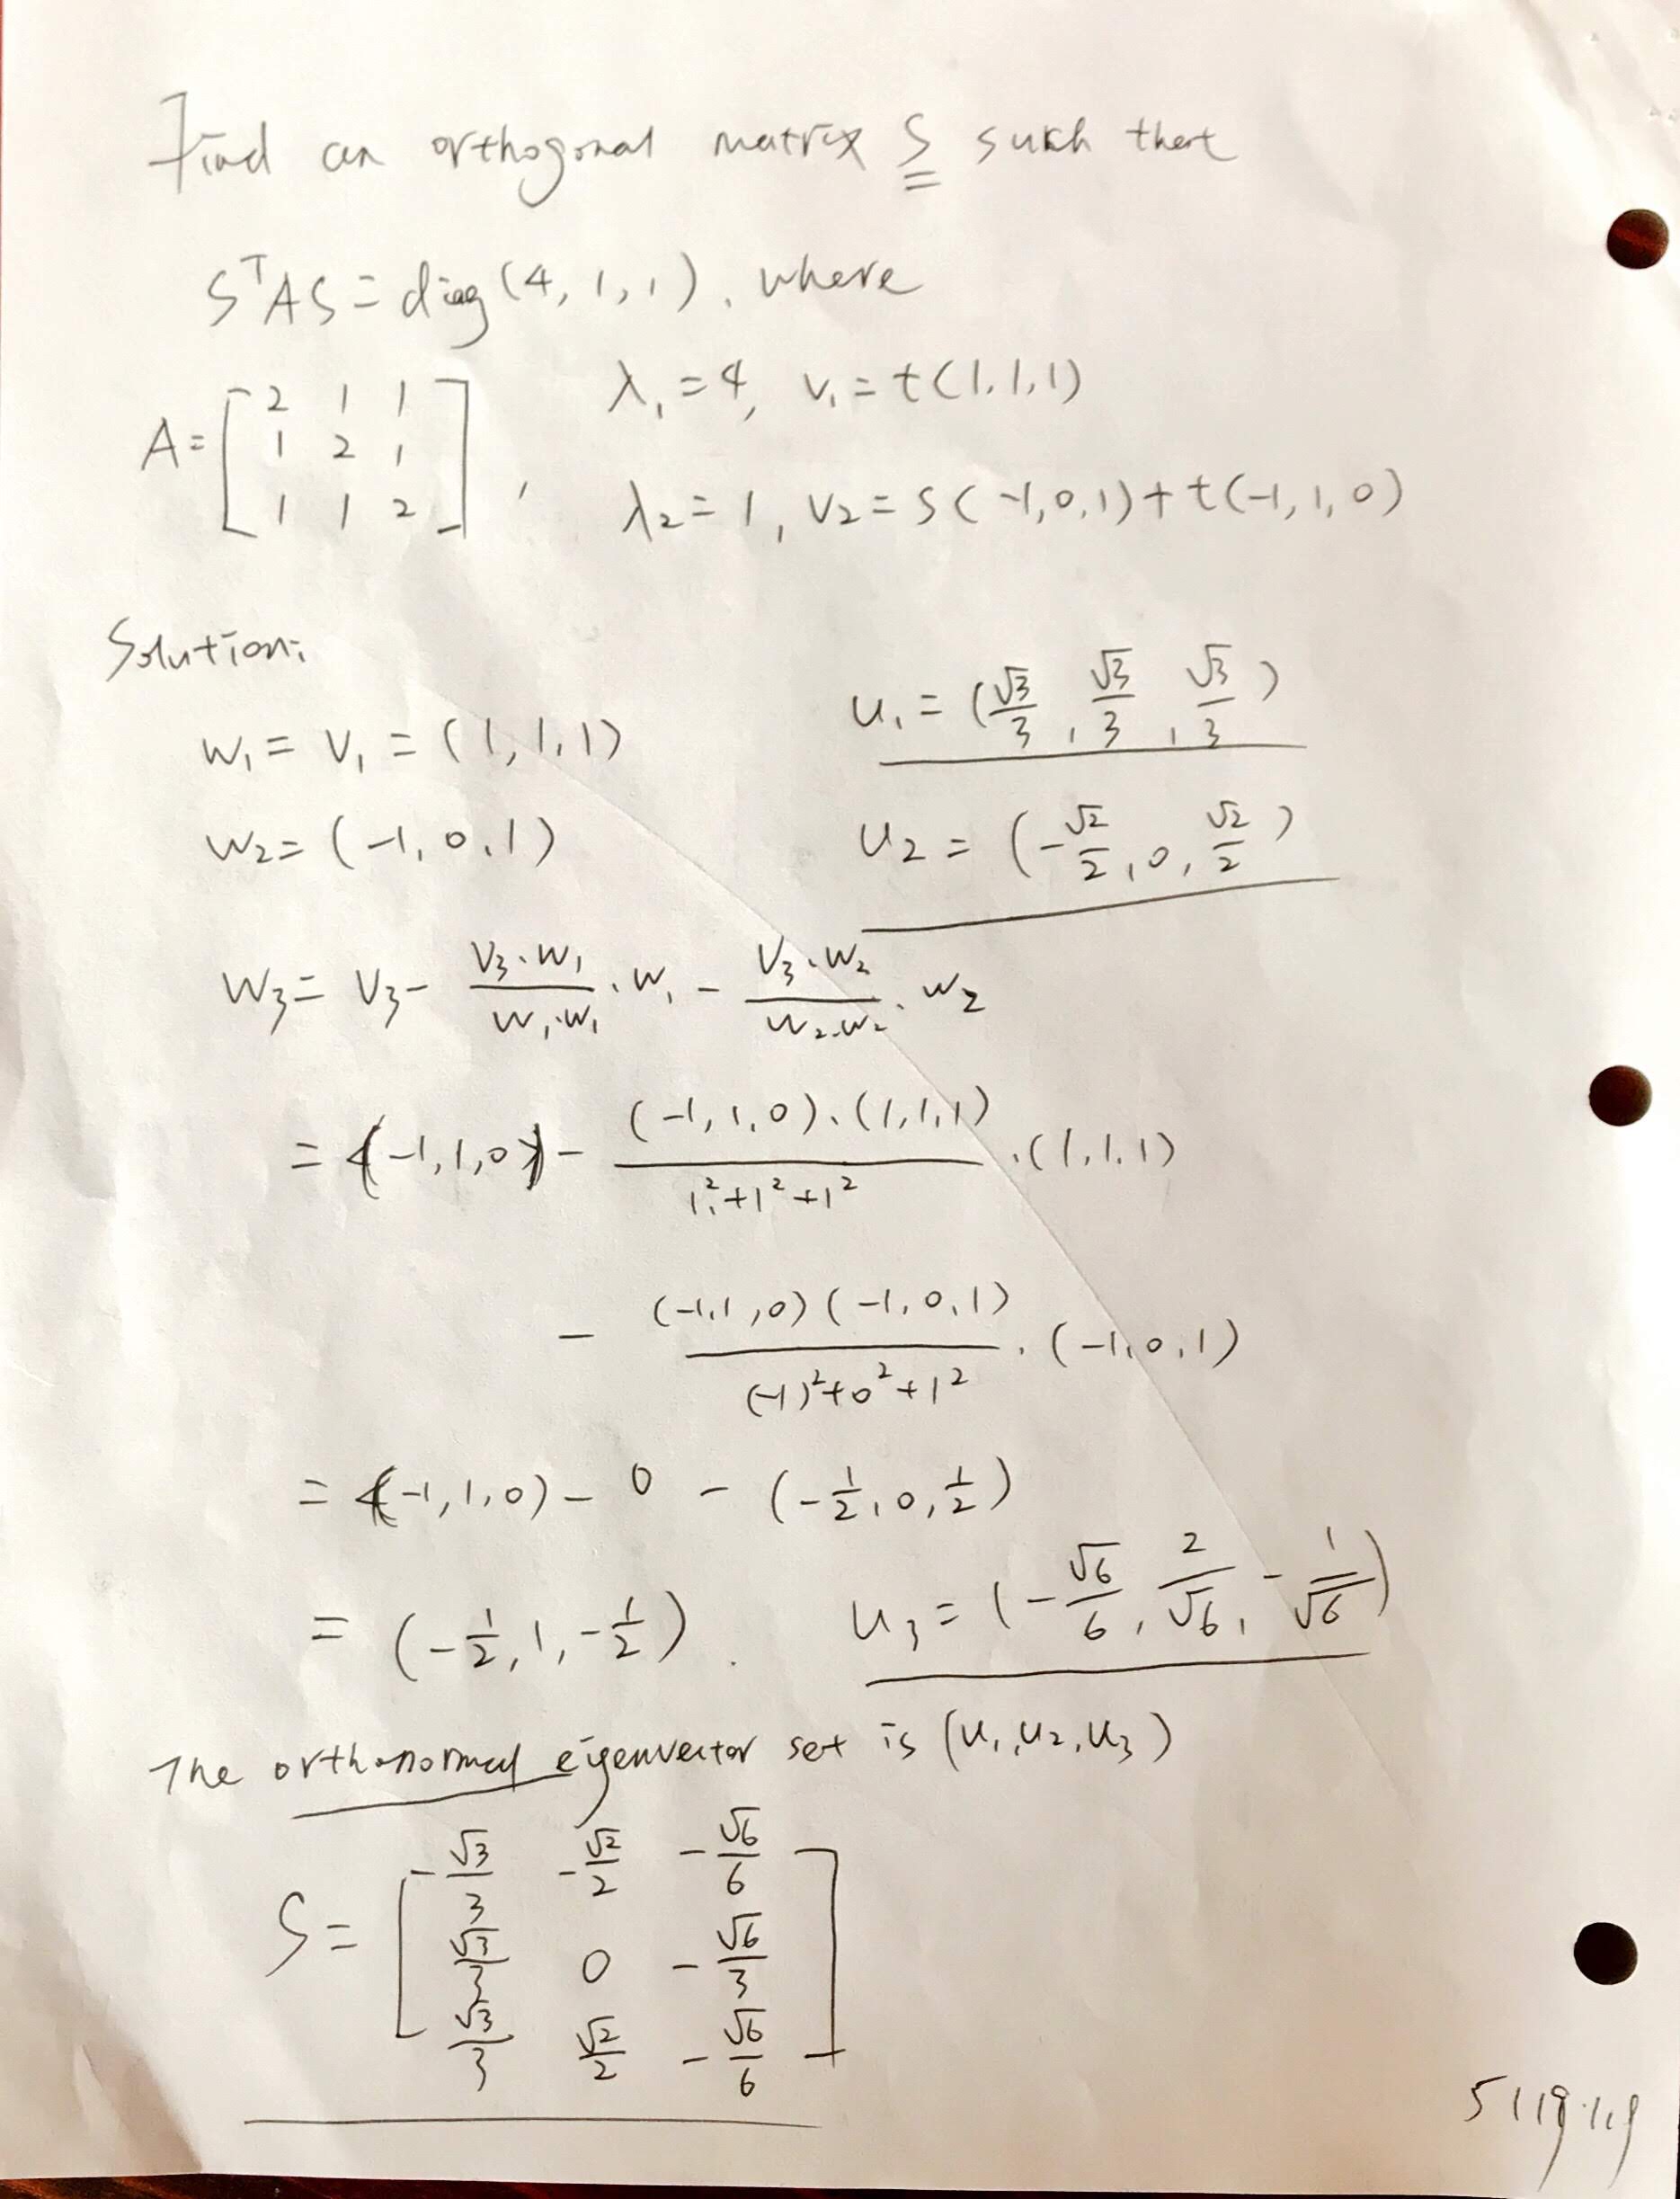 Find an orthogonal matrix S such that
SᵀAS = diag(4, 1, 1), where
A = [2 1 1; 1 2 1; 1 1 2],
λ₁ = 4, v₁ = t(1, 1, 1)
λ₂ = 1, v₂ = s(-1, 0, 1) + t(-1, 1, 0)
Solution:
w₁ = v₁ = (1, 1, 1)
u₁ = (√3/3, √3/3, √3/3)
w₂ = (-1, 0, 1)
u₂ = (-√2/2, 0, √2/2)
w₃ = v₃ - (v₃·w₁)/(w₁·w₁) · w₁ - (v₃·w₂)/(w₂·w₂) · w₂
= (-1, 1, 0) - ((-1, 1, 0)·(1, 1, 1))/(1² + 1² + 1²) · (1, 1, 1)
- ((-1, 1, 0)(-1, 0, 1))/((-1)² + 0² + 1²) · (-1, 0, 1)
= (-1, 1, 0) - 0 - (-1/2, 0, 1/2)
= (-1/2, 1, -1/2).
u₃ = (-√6/6, 2/√6, -1/√6)
The orthonormal eigenvector set is (u₁, u₂, u₃)
S = [-√3/3 -√2/2 -√6/6; √3/3 0 -√6/3; √3/3 √2/2 -√6/6]